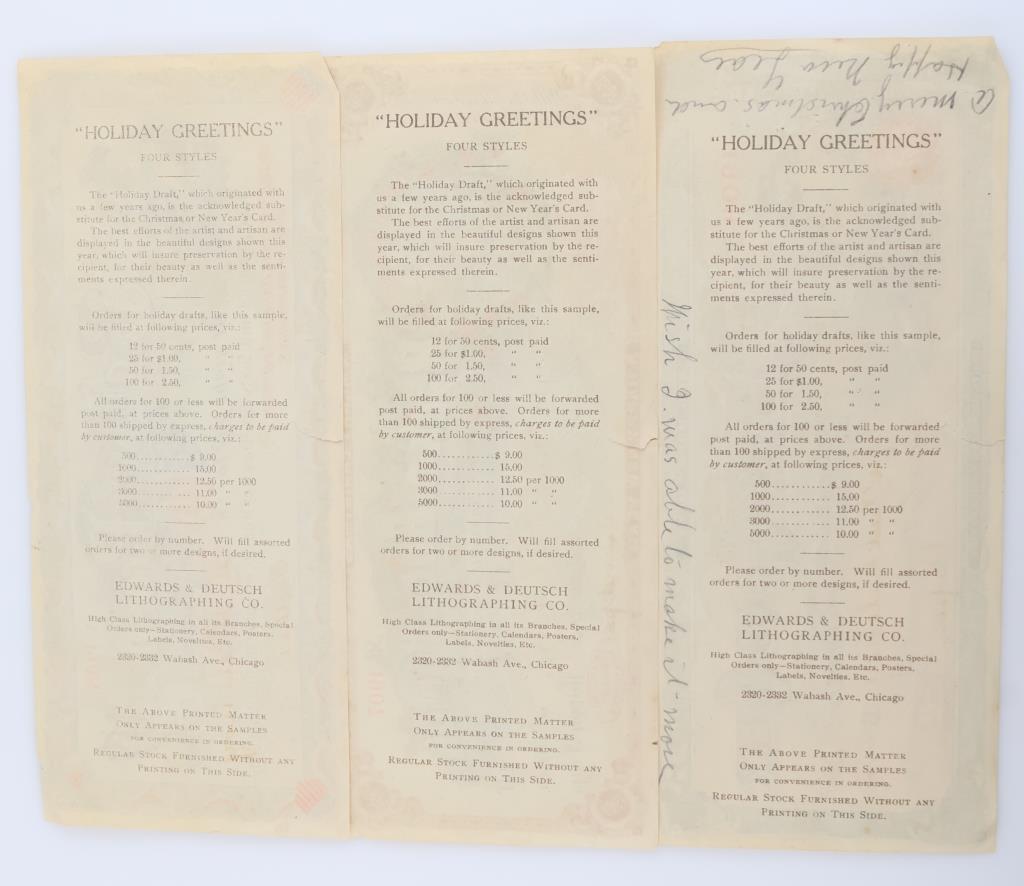 "HOLIDAY GREETINGS"
FOUR STYLES
The "Holiday Draft," which originated with
us a few years ago, is the acknowledged sub-
stitute for the Christmas or New Year's Card.
The best efforts of the artist and artisan are
displayed in the beautiful designs shown this
year, which will insure preservation by the re-
cipient, for their beauty as well as the senti-
ments expressed therein.
Orders for holiday drafts, like this sample,
will be filled at following prices, viz.:
12 for 50 cents, post paid
25 for $1.00, " "
50 for 1.50, " "
100 for 2.50, " "
All orders for 100 or less will be forwarded
post paid, at prices above. Orders for more
than 100 shipped by express, charges to be paid
by customer, at following prices, viz.:
500...........$ 9.00
1000............ 15.00
2000............ 12.50 per 1000
3000............ 11.00 " "
5000............ 10.00 " "
Please order by number. Will fill assorted
orders for two or more designs, if desired.
EDWARDS & DEUTSCH
LITHOGRAPHING CO.
High Class Lithographing in all its Branches, Special
Orders only—Stationery, Calendars, Posters,
Labels, Novelties, Etc.
2320-2332 Wabash Ave., Chicago
THE ABOVE PRINTED MATTER
ONLY APPEARS ON THE SAMPLES
FOR CONVENIENCE IN ORDERING.
REGULAR STOCK FURNISHED WITHOUT ANY
PRINTING ON THIS SIDE.
"HOLIDAY GREETINGS"
FOUR STYLES
The "Holiday Draft," which originated with
us a few years ago, is the acknowledged sub-
stitute for the Christmas or New Year's Card.
The best efforts of the artist and artisan are
displayed in the beautiful designs shown this
year, which will insure preservation by the re-
cipient, for their beauty as well as the senti-
ments expressed therein.
Orders for holiday drafts, like this sample,
will be filled at following prices, viz.:
12 for 50 cents, post paid
25 for $1.00, " "
50 for 1.50, " "
100 for 2.50, " "
All orders for 100 or less will be forwarded
post paid, at prices above. Orders for more
than 100 shipped by express, charges to be paid
by customer, at following prices, viz.:
500...........$ 9.00
1000............ 15.00
2000............ 12.50 per 1000
3000............ 11.00 " "
5000............ 10.00 " "
Please order by number. Will fill assorted
orders for two or more designs, if desired.
EDWARDS & DEUTSCH
LITHOGRAPHING CO.
High Class Lithographing in all its Branches, Special
Orders only—Stationery, Calendars, Posters,
Labels, Novelties, Etc.
2320-2332 Wabash Ave., Chicago
THE ABOVE PRINTED MATTER
ONLY APPEARS ON THE SAMPLES
FOR CONVENIENCE IN ORDERING.
REGULAR STOCK FURNISHED WITHOUT ANY
PRINTING ON THIS SIDE.
A merry Christmas and
Happy New Year
Wish I was able to make it more
"HOLIDAY GREETINGS"
FOUR STYLES
The "Holiday Draft," which originated with
us a few years ago, is the acknowledged sub-
stitute for the Christmas or New Year's Card.
The best efforts of the artist and artisan are
displayed in the beautiful designs shown this
year, which will insure preservation by the re-
cipient, for their beauty as well as the senti-
ments expressed therein.
Orders for holiday drafts, like this sample,
will be filled at following prices, viz.:
12 for 50 cents, post paid
25 for $1.00, " "
50 for 1.50, " "
100 for 2.50, " "
All orders for 100 or less will be forwarded
post paid, at prices above. Orders for more
than 100 shipped by express, charges to be paid
by customer, at following prices, viz.:
500...........$ 9.00
1000............ 15.00
2000............ 12.50 per 1000
3000............ 11.00 " "
5000............ 10.00 " "
Please order by number. Will fill assorted
orders for two or more designs, if desired.
EDWARDS & DEUTSCH
LITHOGRAPHING CO.
High Class Lithographing in all its Branches, Special
Orders only—Stationery, Calendars, Posters,
Labels, Novelties, Etc.
2320-2332 Wabash Ave., Chicago
THE ABOVE PRINTED MATTER
ONLY APPEARS ON THE SAMPLES
FOR CONVENIENCE IN ORDERING.
REGULAR STOCK FURNISHED WITHOUT ANY
PRINTING ON THIS SIDE.